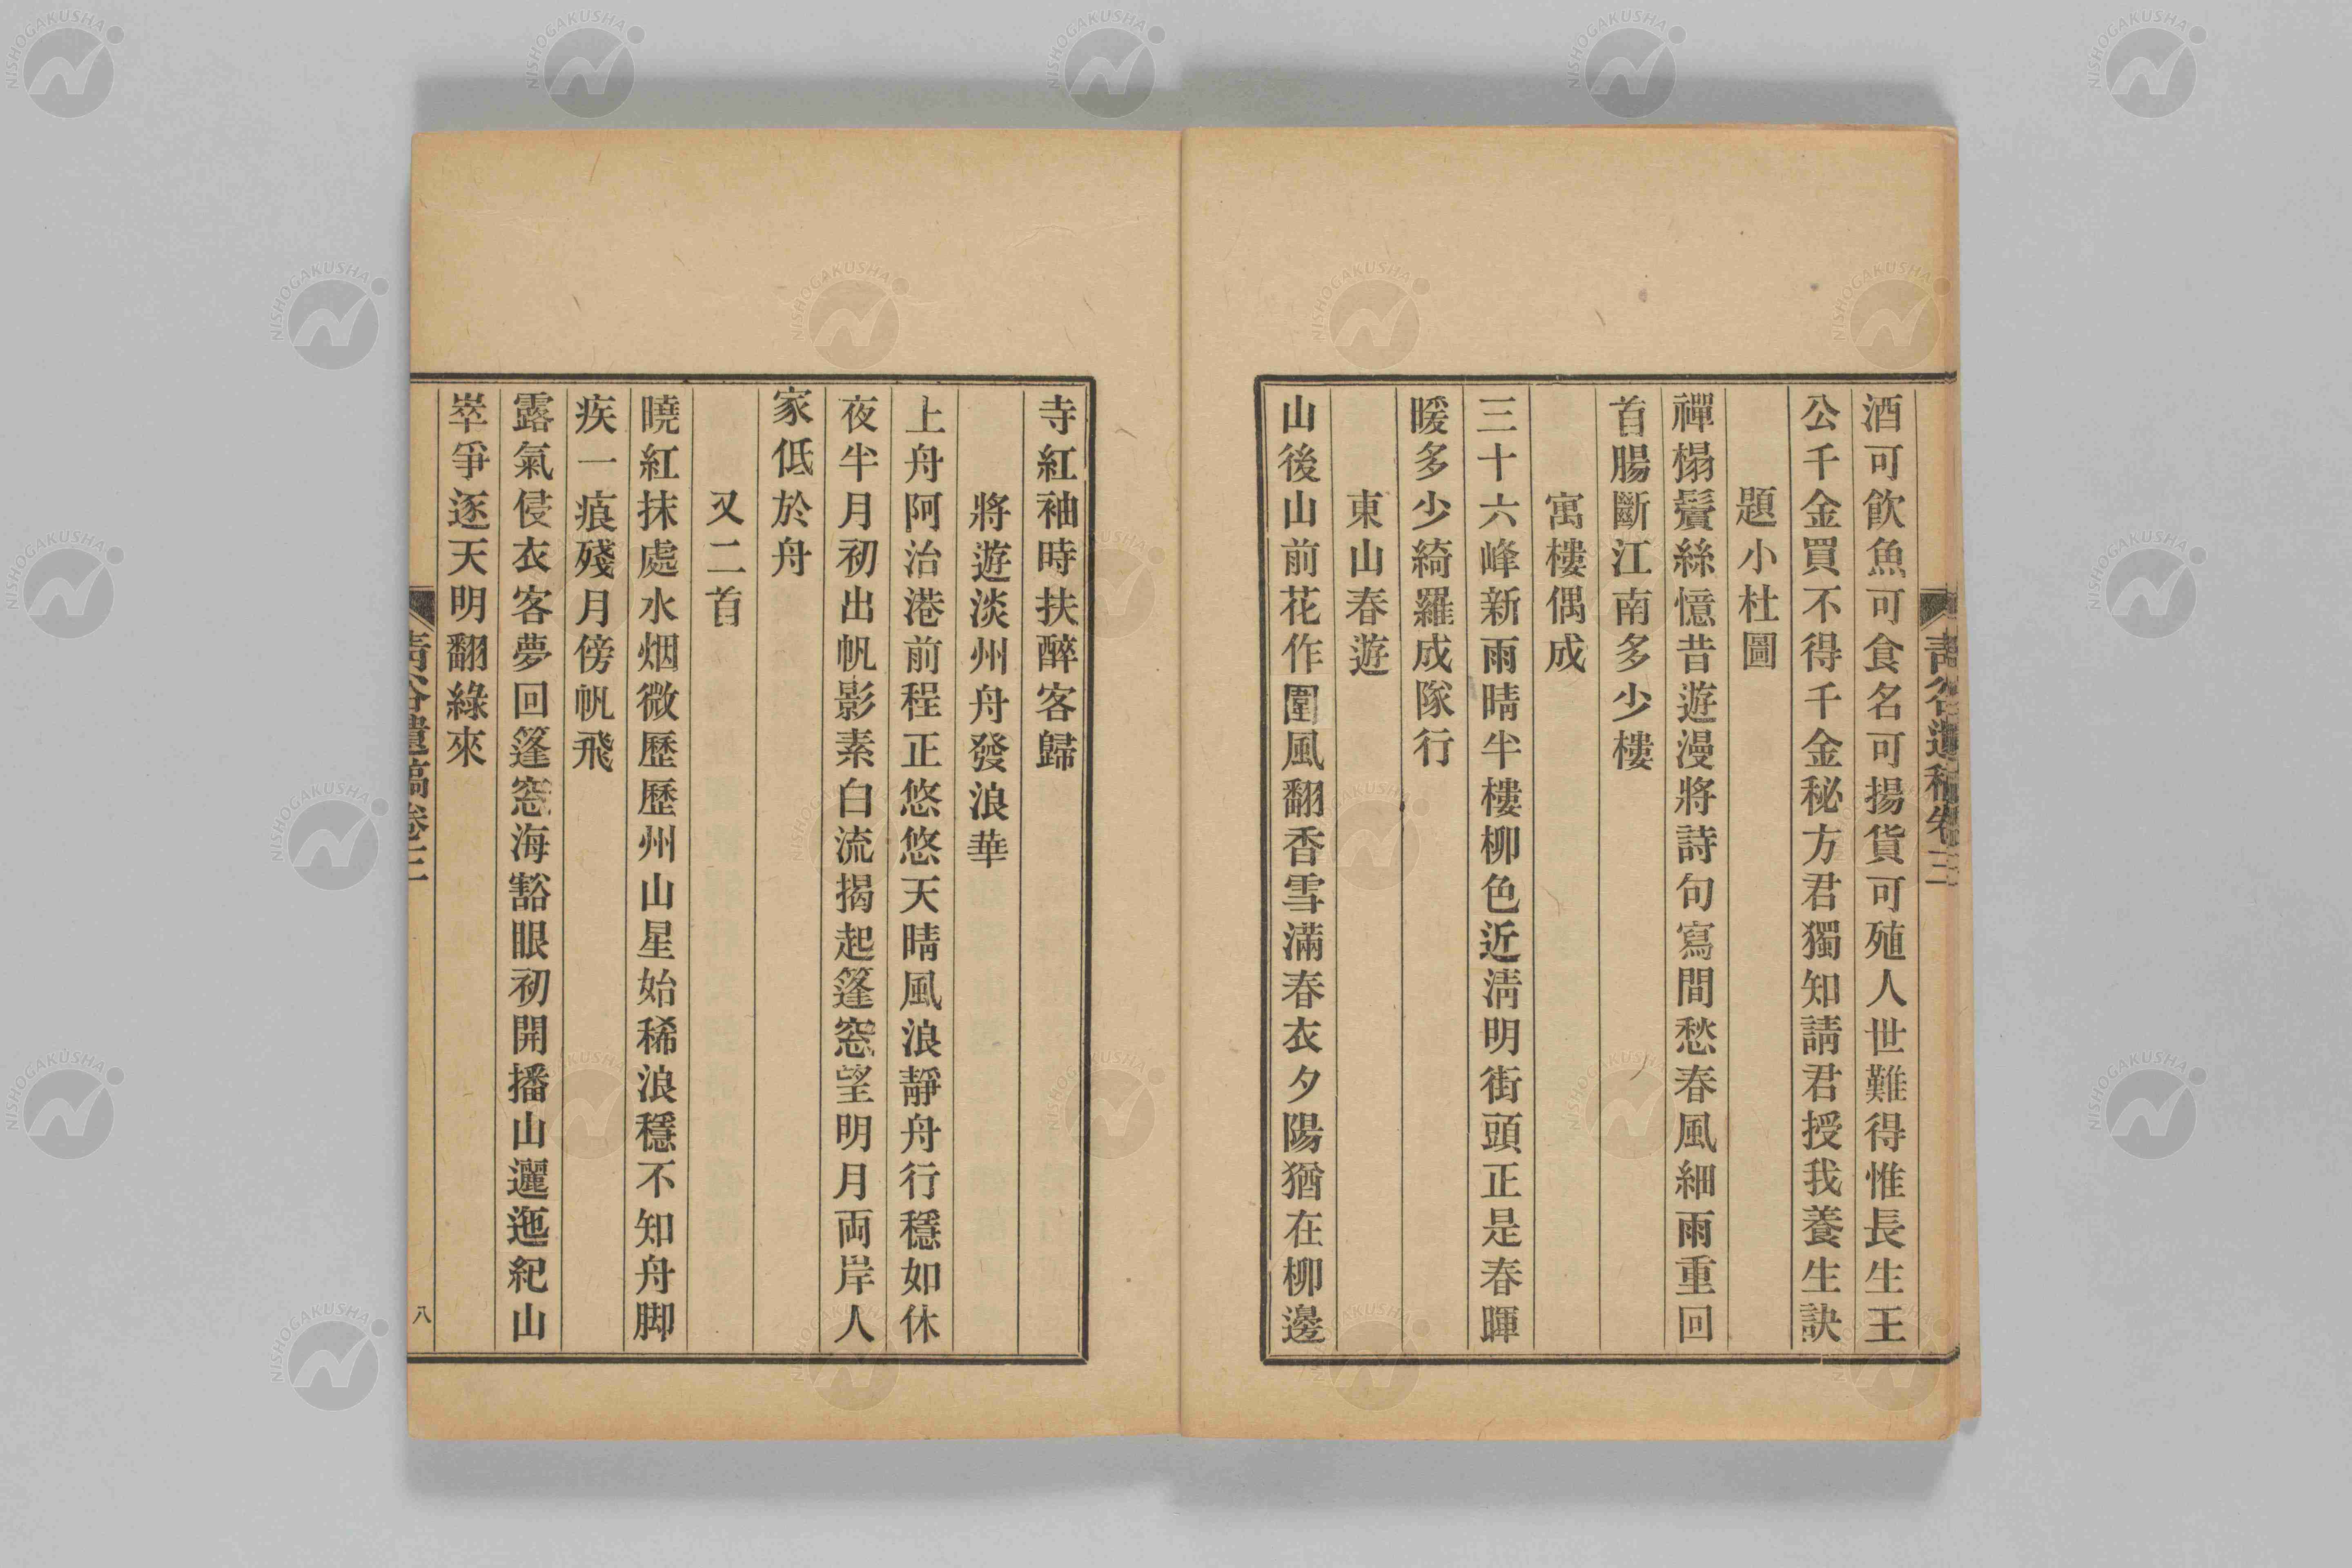 青谷遺稿卷三
酒可飲魚可食名可揚貨可殖人世難得惟長生王
公千金買不得千金秘方君獨知請君授我養生訣
題小杜圖
禪榻鬢絲憶昔遊漫將詩句寫間愁春風細雨重回
首腸斷江南多少樓
寓樓偶成
三十六峰新雨晴半樓柳色近淸明街頭正是春暉
暖多少綺羅成隊行
東山春遊
山後山前花作圍風翻香雪滿春衣夕陽猶在柳邊
寺紅袖時扶醉客歸
將遊淡州舟發浪華
上舟阿治港前程正悠悠天晴風浪靜舟行穩如休
夜半月初出帆影素白流揭起篷窓望明月両岸人
家低於舟
又二首
曉紅抹處水烟微歷歷州山星始稀浪穩不知舟脚
疾一痕殘月傍帆飛
露氣侵衣客夢回篷窓海豁眼初開播山邐迤紀山
崒爭逐天明翻綠來
青谷遺稿卷三
八
NISHOGAKUSHA